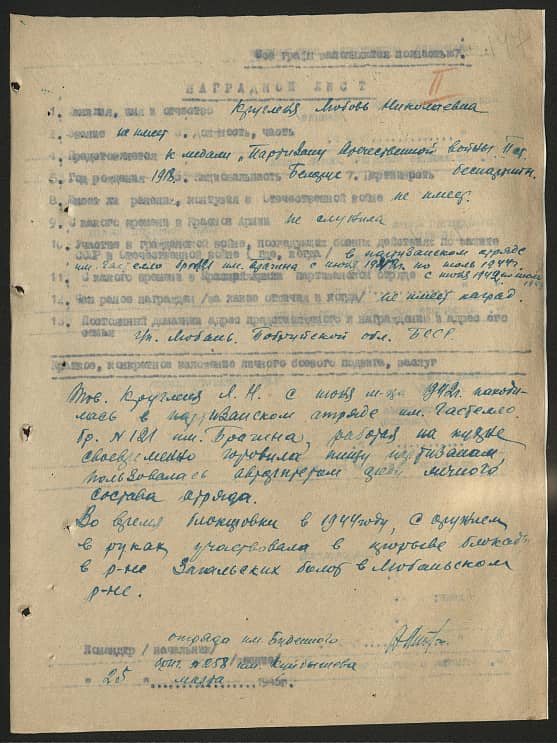 Все графы заполняются полностью.
II
НАГРАДНОЙ ЛИСТ
1. Фамилия, имя и отчество Круглея Любовь Николаевна
2. Звание не имеет 3. Должность, часть
4. Представляется к медали "Партизану Отечественной войны" II ст.
5. Год рождения 6. Национальность Белорус 7. Партийность беспартийн.
8. Имеет ли ранения, контузии в Отечественной войне не имеет.
9. С какого времени в Красной Армии не служила
10. Участие в гражданской войне, последующих боевых действиях по защите
СССР и Отечественной войне /где, когда/ в партизанском отряде
им. Гастелло им. Брагина с июня по июль 1944г.
11. С какого времени в партизанском отряде с июня 1942
12. Чем ранее награжден /за какие отличия и когда/ не имеет наград.
13. Постоянный домашний адрес представляемого к награждению и адрес его
семьи г/п. Любань. Бобруйской обл. БССР.
Краткое, конкретное изложение личного боевого подвига, заслуг
Тов. Круглея Л. Н. с июня м-ца 1942г. находи-
лась в партизанском отряде им. Гастелло
бр. N 121 им. Брагина, работая на кухне
своевременно готовила пищу партизанам,
пользовалась авторитетом среди личного
состава отряда.
Во время блокировки в 1944 году, с оружием
в руках участвовала в прорыве блокады
в р-не Загальских болот в Любаньском
р-не.
отряда им. Буденного
Командир /начальник/
бриг. № 258 им. Куйбышева
" 25 " марта 1945г.